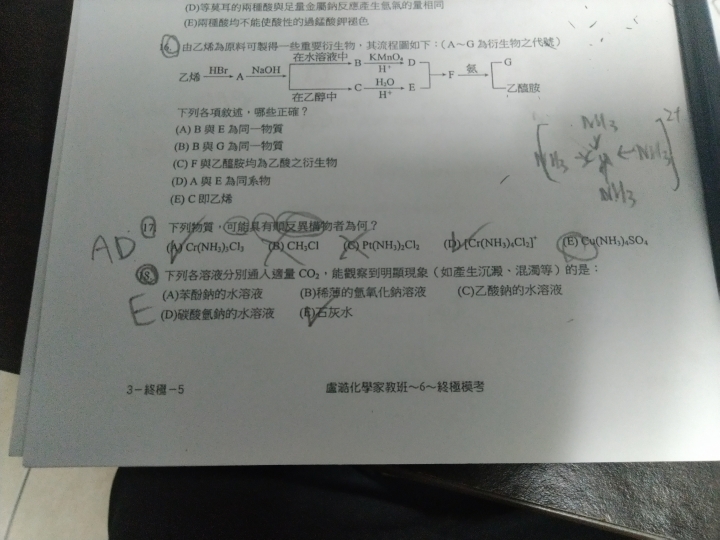 (D)等莫耳的兩種酸與足量金屬鈉反應產生氫氣的量相同
(E)兩種酸均不能使酸性的過錳酸鉀褪色
16. 由乙烯為原料可製得一些重要衍生物，其流程圖如下：（A～G 為衍生物之代號）
乙烯 HBr A NaOH 在水溶液中 B KMnO₄ H⁺ D F 氨 G
在乙醇中 C H₂O H⁺ E 乙醯胺
下列各項敘述，哪些正確？
(A) B 與 E 為同一物質
(B) B 與 G 為同一物質
(C) F 與乙醯胺均為乙酸之衍生物
(D) A 與 E 為同系物
(E) C 即乙烯
NH₃
NH₃ NH₃
NH₃
2+
17. 下列物質，可能具有順反異構物者為何？
AD
(A) Cr(NH₃)₃Cl₃ (B) CH₃Cl (C) Pt(NH₃)₂Cl₂ (D) [Cr(NH₃)₄Cl₂]⁺ (E) Cu(NH₃)₄SO₄
18. 下列各溶液分別通入適量 CO₂，能觀察到明顯現象（如產生沉澱、混濁等）的是：
(A)苯酚鈉的水溶液 (B)稀薄的氫氧化鈉溶液 (C)乙酸鈉的水溶液
E (D)碳酸氫鈉的水溶液 (E)石灰水
3－終極－5 盧澔化學家教班～6～終極模考